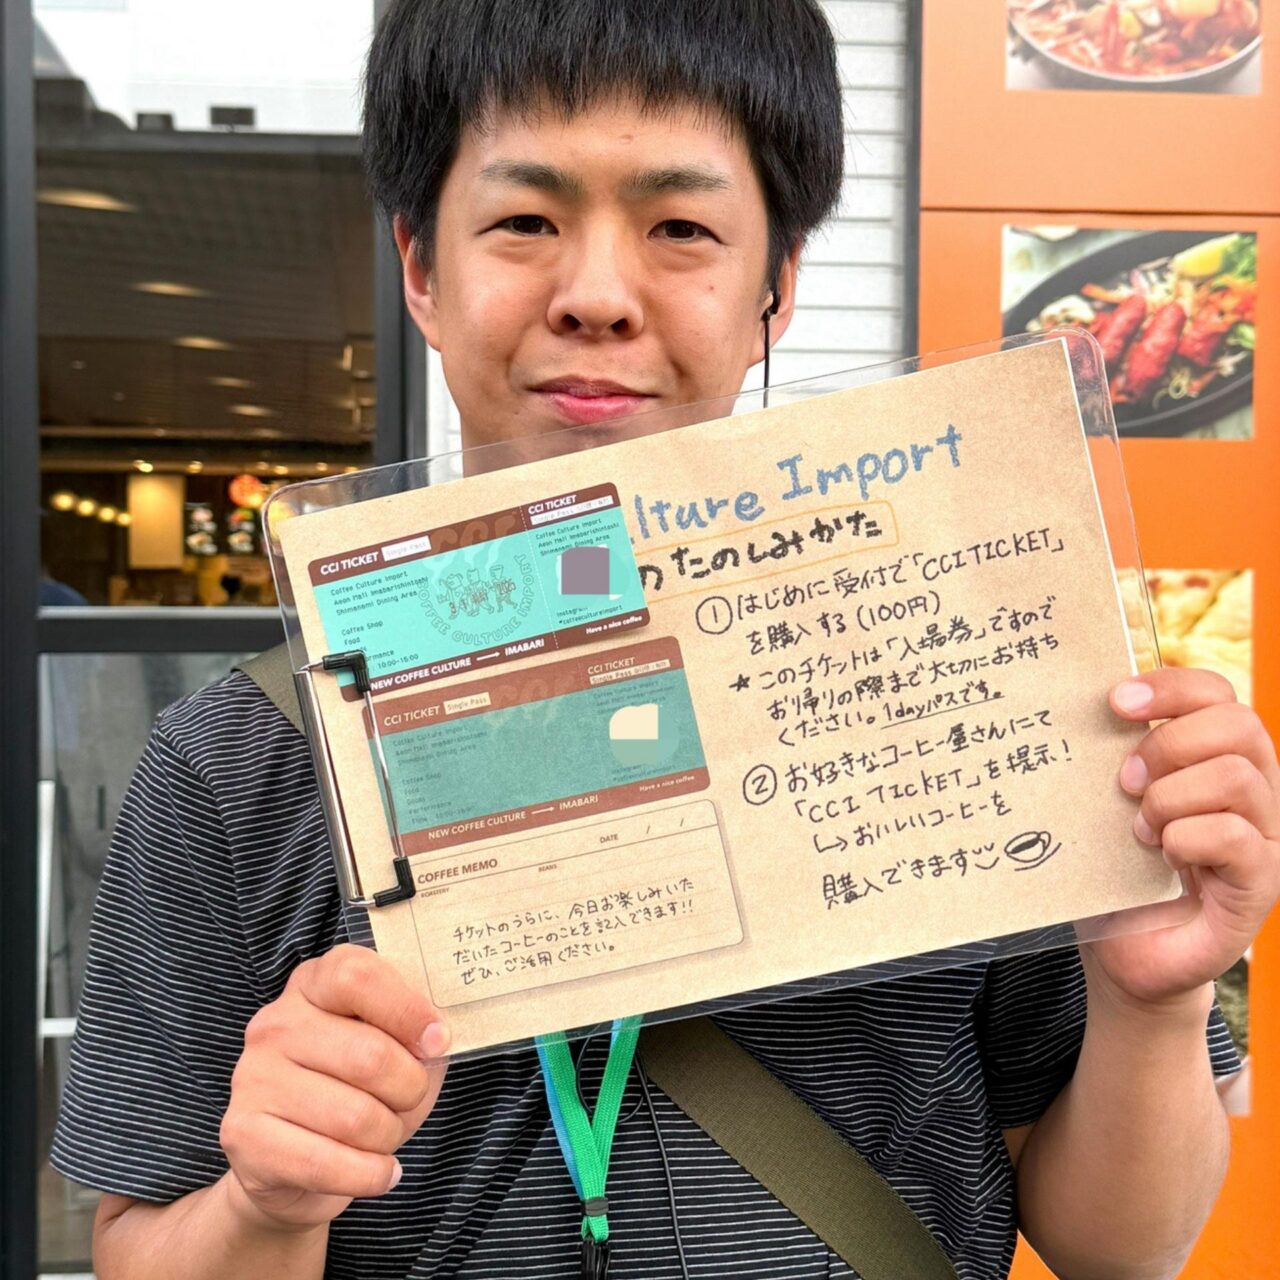 lture Import
のたのしみかた
① はじめに受付で「CCI TICKET」
を購入する(100円)
★このチケットは「入場券」ですので
お帰りの際まで大切にお持ち
ください。1dayパスです。
② お好きなコーヒー屋さんにて
「CCI TICKET」を提示!
↳おいしいコーヒーを
購入できます
CCI TICKET Single Pass
Coffee Culture Import
Aeon Mall Imabarishintoshi
Shimanami Dining Area
Coffee Shop
Food
10:00-16:00
COFFEE CULTURE IMPORT
NEW COFFEE CULTURE → IMABARI
CCI TICKET
Coffee Culture Import
Aeon Mall Imabarishintoshi
Shimanami Dining Area
Instagram
*coffeecultureimport
Have a nice coffee
CCI TICKET Single Pass
Coffee Culture Import
Aeon Mall Imabarishintoshi
Shimanami Dining Area
Coffee Shop
Food
Goods
Performance
NEW COFFEE CULTURE → IMABARI
CCI TICKET
Have a nice coffee
COFFEE MEMO
DATE / /
ROASTERY
BEANS
チケットのうらに、今日お楽しみいた
だいたコーヒーのことを記入できます!!
ぜひ、ご活用ください。